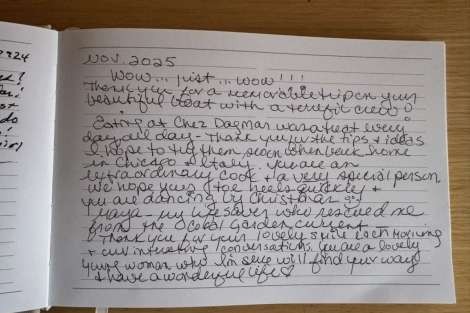 2024
Nov. 2025
Wow... just... wow!!!
Thank you for a memorable trip on your
beautiful boat with a terrific crew!
Eating at Chez Dagmar was a treat every
day, all day - Thank you for the tips & ideas
I hope to try them soon when back home
in Chicago & Italy. You are an
extraordinary cook & a very special person.
We hope your toe heels quickly &
you are dancing by Christmas
Maya - my lifesaver who rescued me
from the Coral Garden current
Thank you for your lovely smile each morning
& our interesting conversations. You are a lovely
young woman who I'm sure will find your way
& have a wonderful life